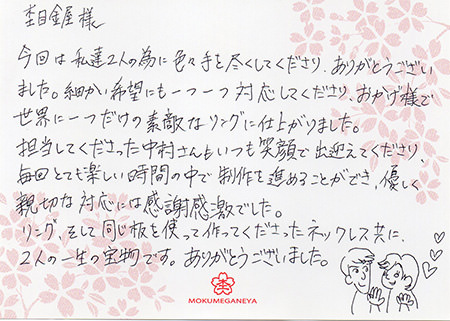 杢目金屋 様
今回は私達2人の為に色々手を尽くしてくださり、ありがとうござい
ました。細かい希望にも一つ一つ対応してくださり、おかげ様で
世界に一つだけの素敵なリングに仕上がりました。
担当してくださった中村さんもいつも笑顔で出迎えてくださり、
毎回とても楽しい時間の中で制作を進めることができ、優しく
親切な対応には感謝感激でした。
リング、そして同じ板を使って作ってくださったネックレス共に、
2人の一生の宝物です。ありがとうございました。
MOKUMEGANEYA